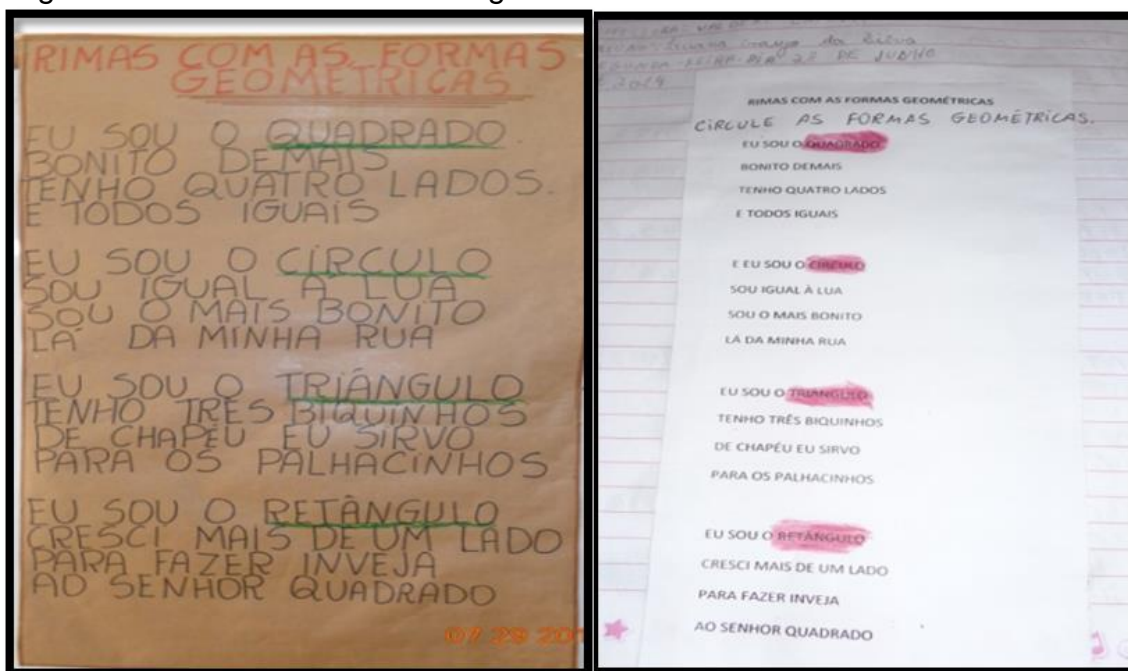 RIMAS COM AS FORMAS
GEOMETRICAS
EU SOU O QUADRADO
BONITO DEMAIS
TENHO QUATRO LADOS.
E TODOS IGUAIS
EU SOU O CÍRCULO
SOU IGUAL A LUA
SOU O MAIS BONITO
LÁ DA MINHA RUA
EU SOU O TRIÂNGULO
TENHO TRES BIQUINHOS
DE CHAPÉU EU SIRVO
PARA OS PALHACINHOS
EU SOU O RETÂNGULO
CRESCI MAIS DE UM LADO
PARA FAZER INVEJA
AO SENHOR QUADRADO
07 29 201
da Silva
DIA 27 DE JUNHO
RIMAS COM AS FORMAS GEOMÉTRICAS
CIRCULE AS FORMAS GEOMÉTRICAS.
EU SOU O QUADRADO
BONITO DEMAIS
TENHO QUATRO LADOS
E TODOS IGUAIS
E EU SOU O CIRCULO
SOU IGUAL À LUA
SOU O MAIS BONITO
LÁ DA MINHA RUA
EU SOU O TRIANGULO
TENHO TRÊS BIQUINHOS
DE CHAPÉU EU SIRVO
PARA OS PALHACINHOS
EU SOU O RETÂNGULO
CRESCI MAIS DE UM LADO
PARA FAZER INVEJA
AO SENHOR QUADRADO